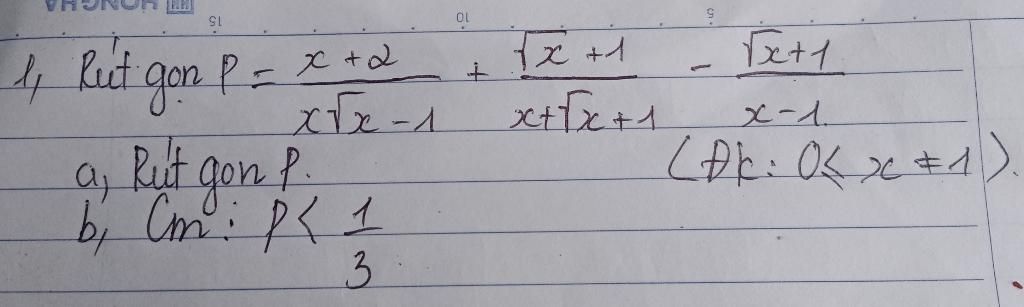 VHONGHA HH
15 10 5
1, Rút gọn P = \frac{x+2}{x\sqrt{x}-1} + \frac{\sqrt{x}+1}{x+\sqrt{x}+1} - \frac{\sqrt{x}+1}{x-1}
a, Rút gọn P. (Đk: 0 ≤ x ≠ 1).
b, Cm: P < \frac{1}{3}